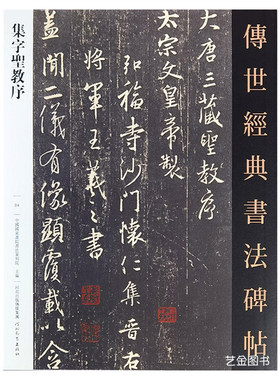 傳世經典書法碑帖
大唐三藏聖教序
太宗文皇帝製
弘福寺沙門懷仁集晉右
將軍王羲之書
蓋聞二儀有像顯覆載以含
集字聖教序
艺金书店